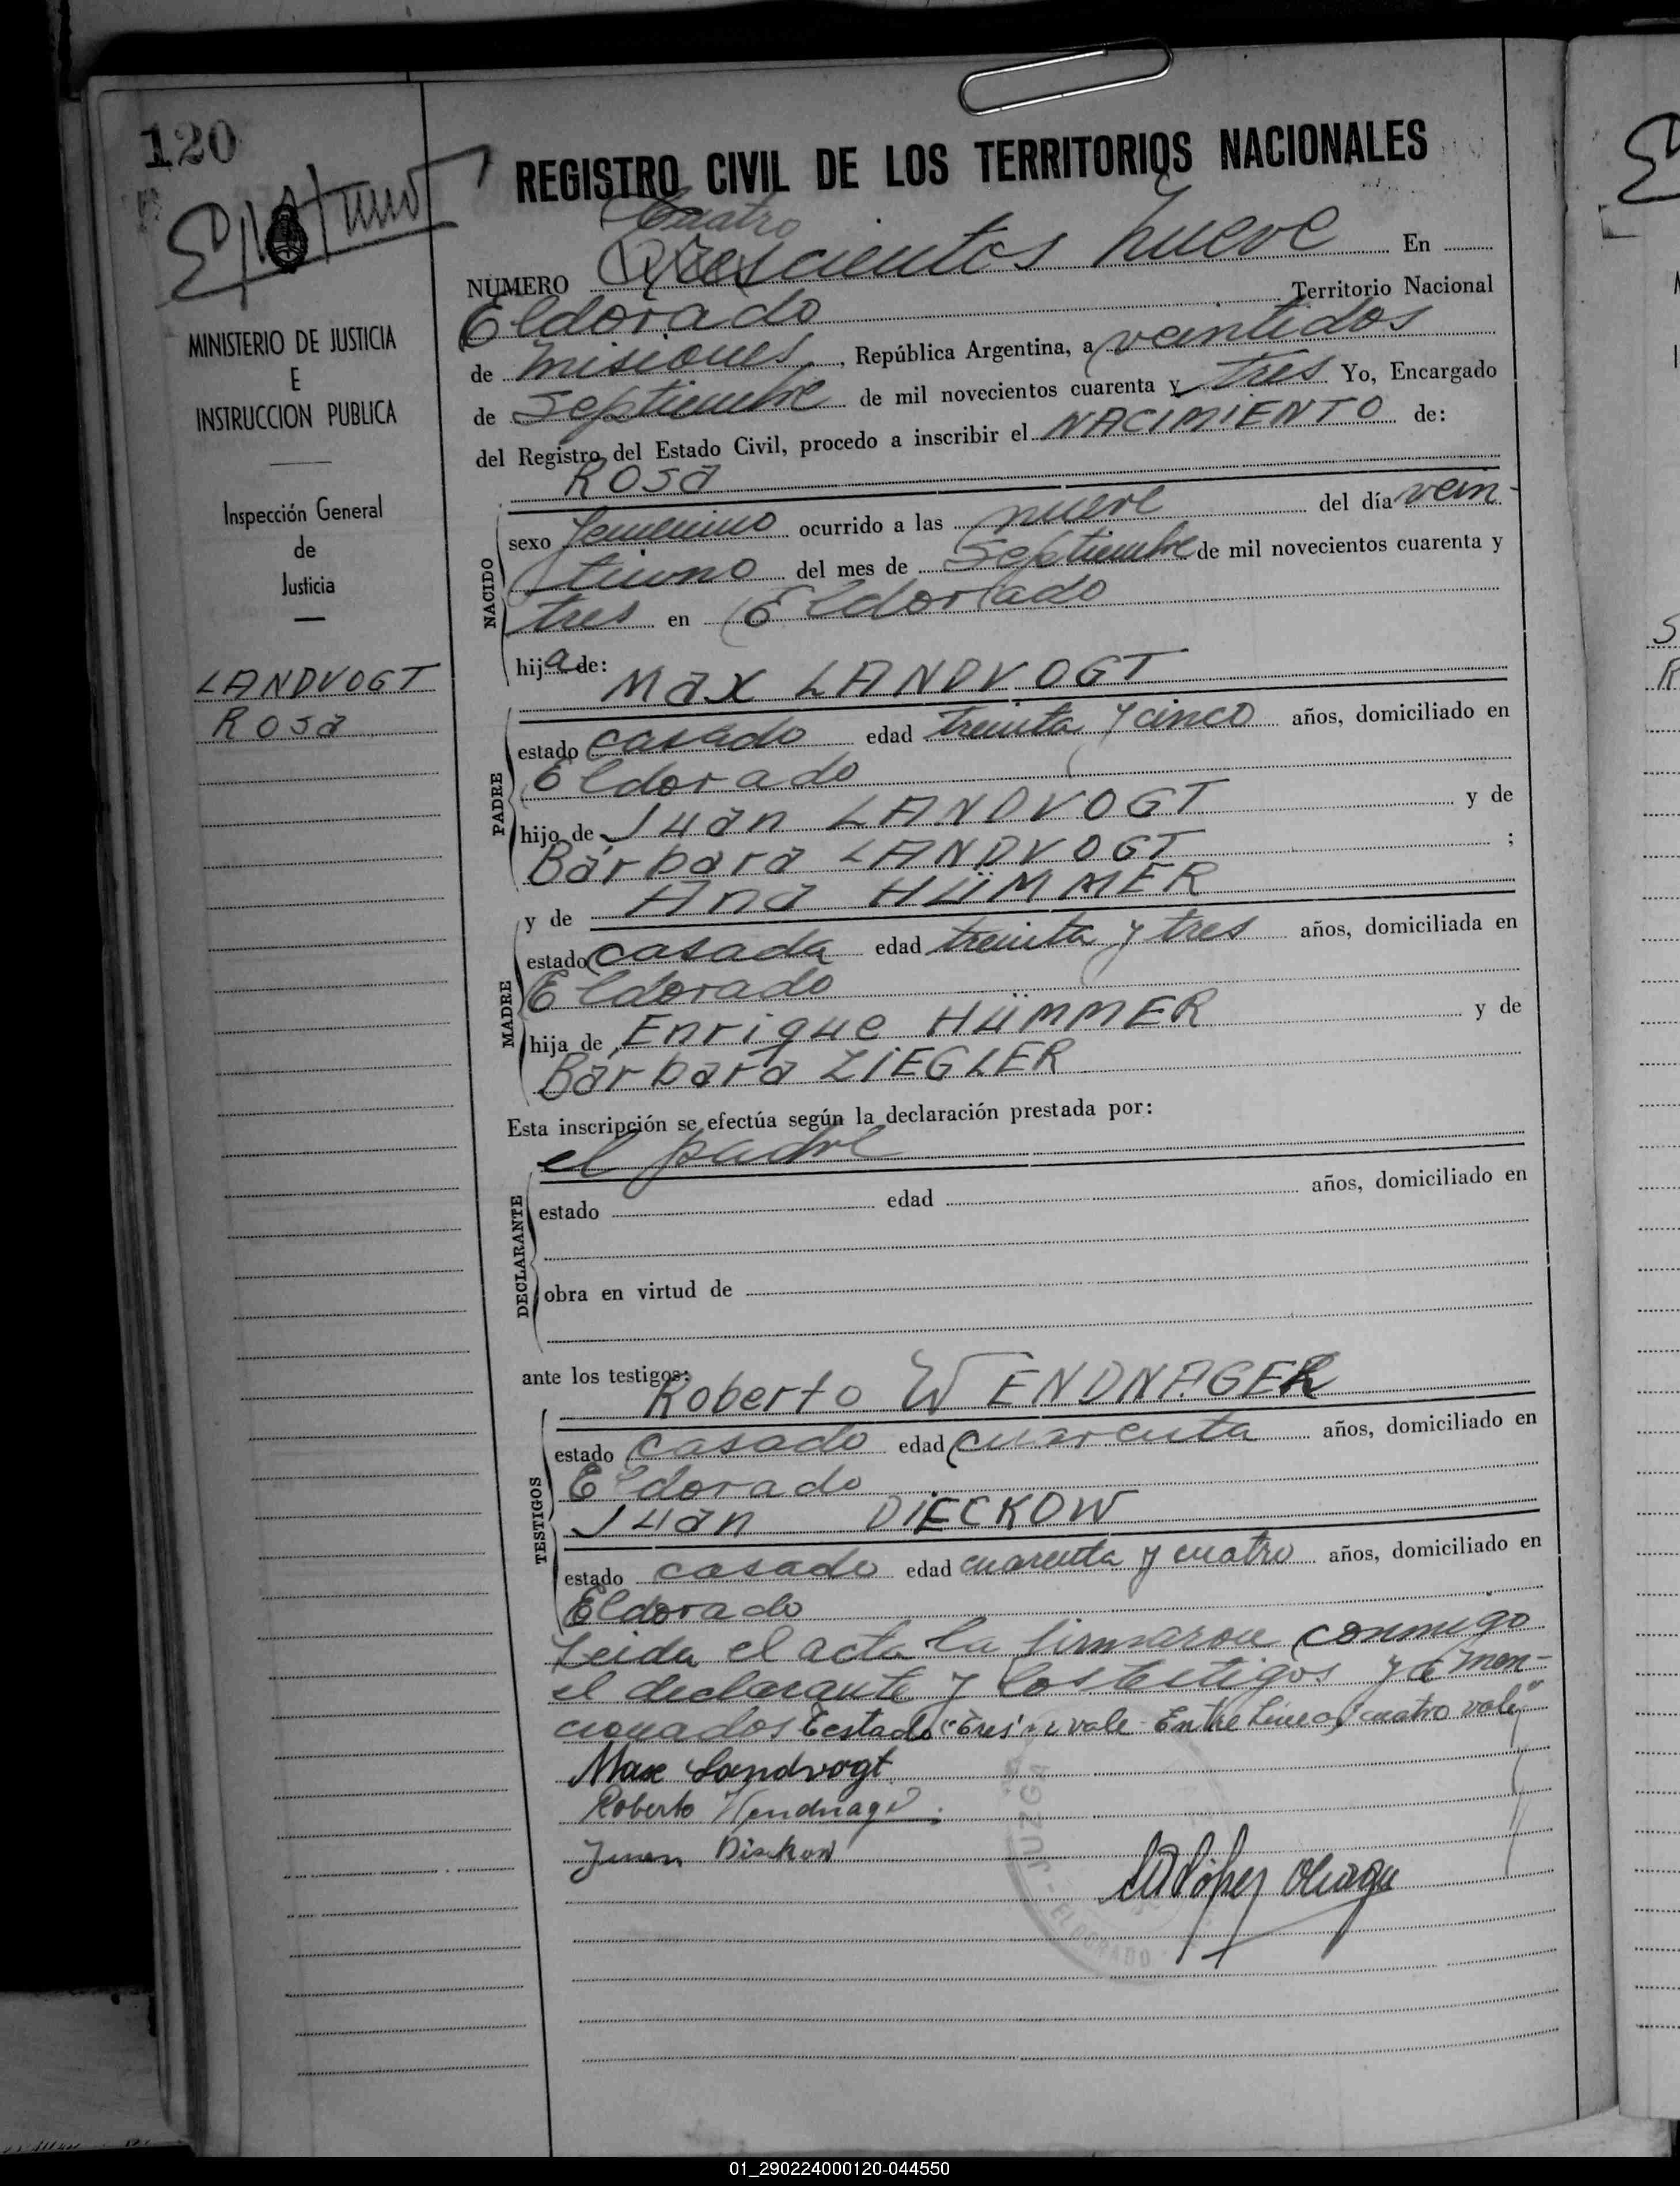 120
REGISTRO CIVIL DE LOS TERRITORIOS NACIONALES
Cuatro
NUMERO Trescientos nueve En
Eldorado Territorio Nacional
de Misiones, República Argentina, a veintidos
de Septiembre de mil novecientos cuarenta y tres Yo, Encargado
del Registro del Estado Civil, procedo a inscribir el NACIMIENTO de:
Rosa
NACIDO
sexo femenino ocurrido a las nueve del día vein-
tiuno del mes de Septiembre de mil novecientos cuarenta y
tres en Eldorado
hija de:
Max LANDVOGT
PADRE
estado casado edad treinta y cinco años, domiciliado en
Eldorado
hijo de Juan LANDVOGT y de
Bárbara LANDVOGT ;
y de Ana HÜMMER
MADRE
estado casada edad treinta y tres años, domiciliada en
Eldorado
hija de Enrique HÜMMER y de
Bárbara ZIEGLER
Esta inscripción se efectúa según la declaración prestada por:
el padre
DECLARANTE
estado edad años, domiciliado en
obra en virtud de
ante los testigos:
Roberto WENDNAGER
TESTIGOS
estado casado edad cuarenta años, domiciliado en
Eldorado
Juan DIECKOW
estado casado edad cuarenta y cuatro años, domiciliado en
Eldorado
Leida el acta la firmaron conmigo
el declarante y los testigos men-
cionados Testado "tres" vale Entre Linea, cuatro vale"
Max Landvogt
Roberto Wendnager
Juan Diekow
López
JUZGA
- ELDORADO -
MINISTERIO DE JUSTICIA
E
INSTRUCCION PUBLICA
Inspección General
de
Justicia
LANDVOGT
Rosa
S
R
01_290224000120-044550